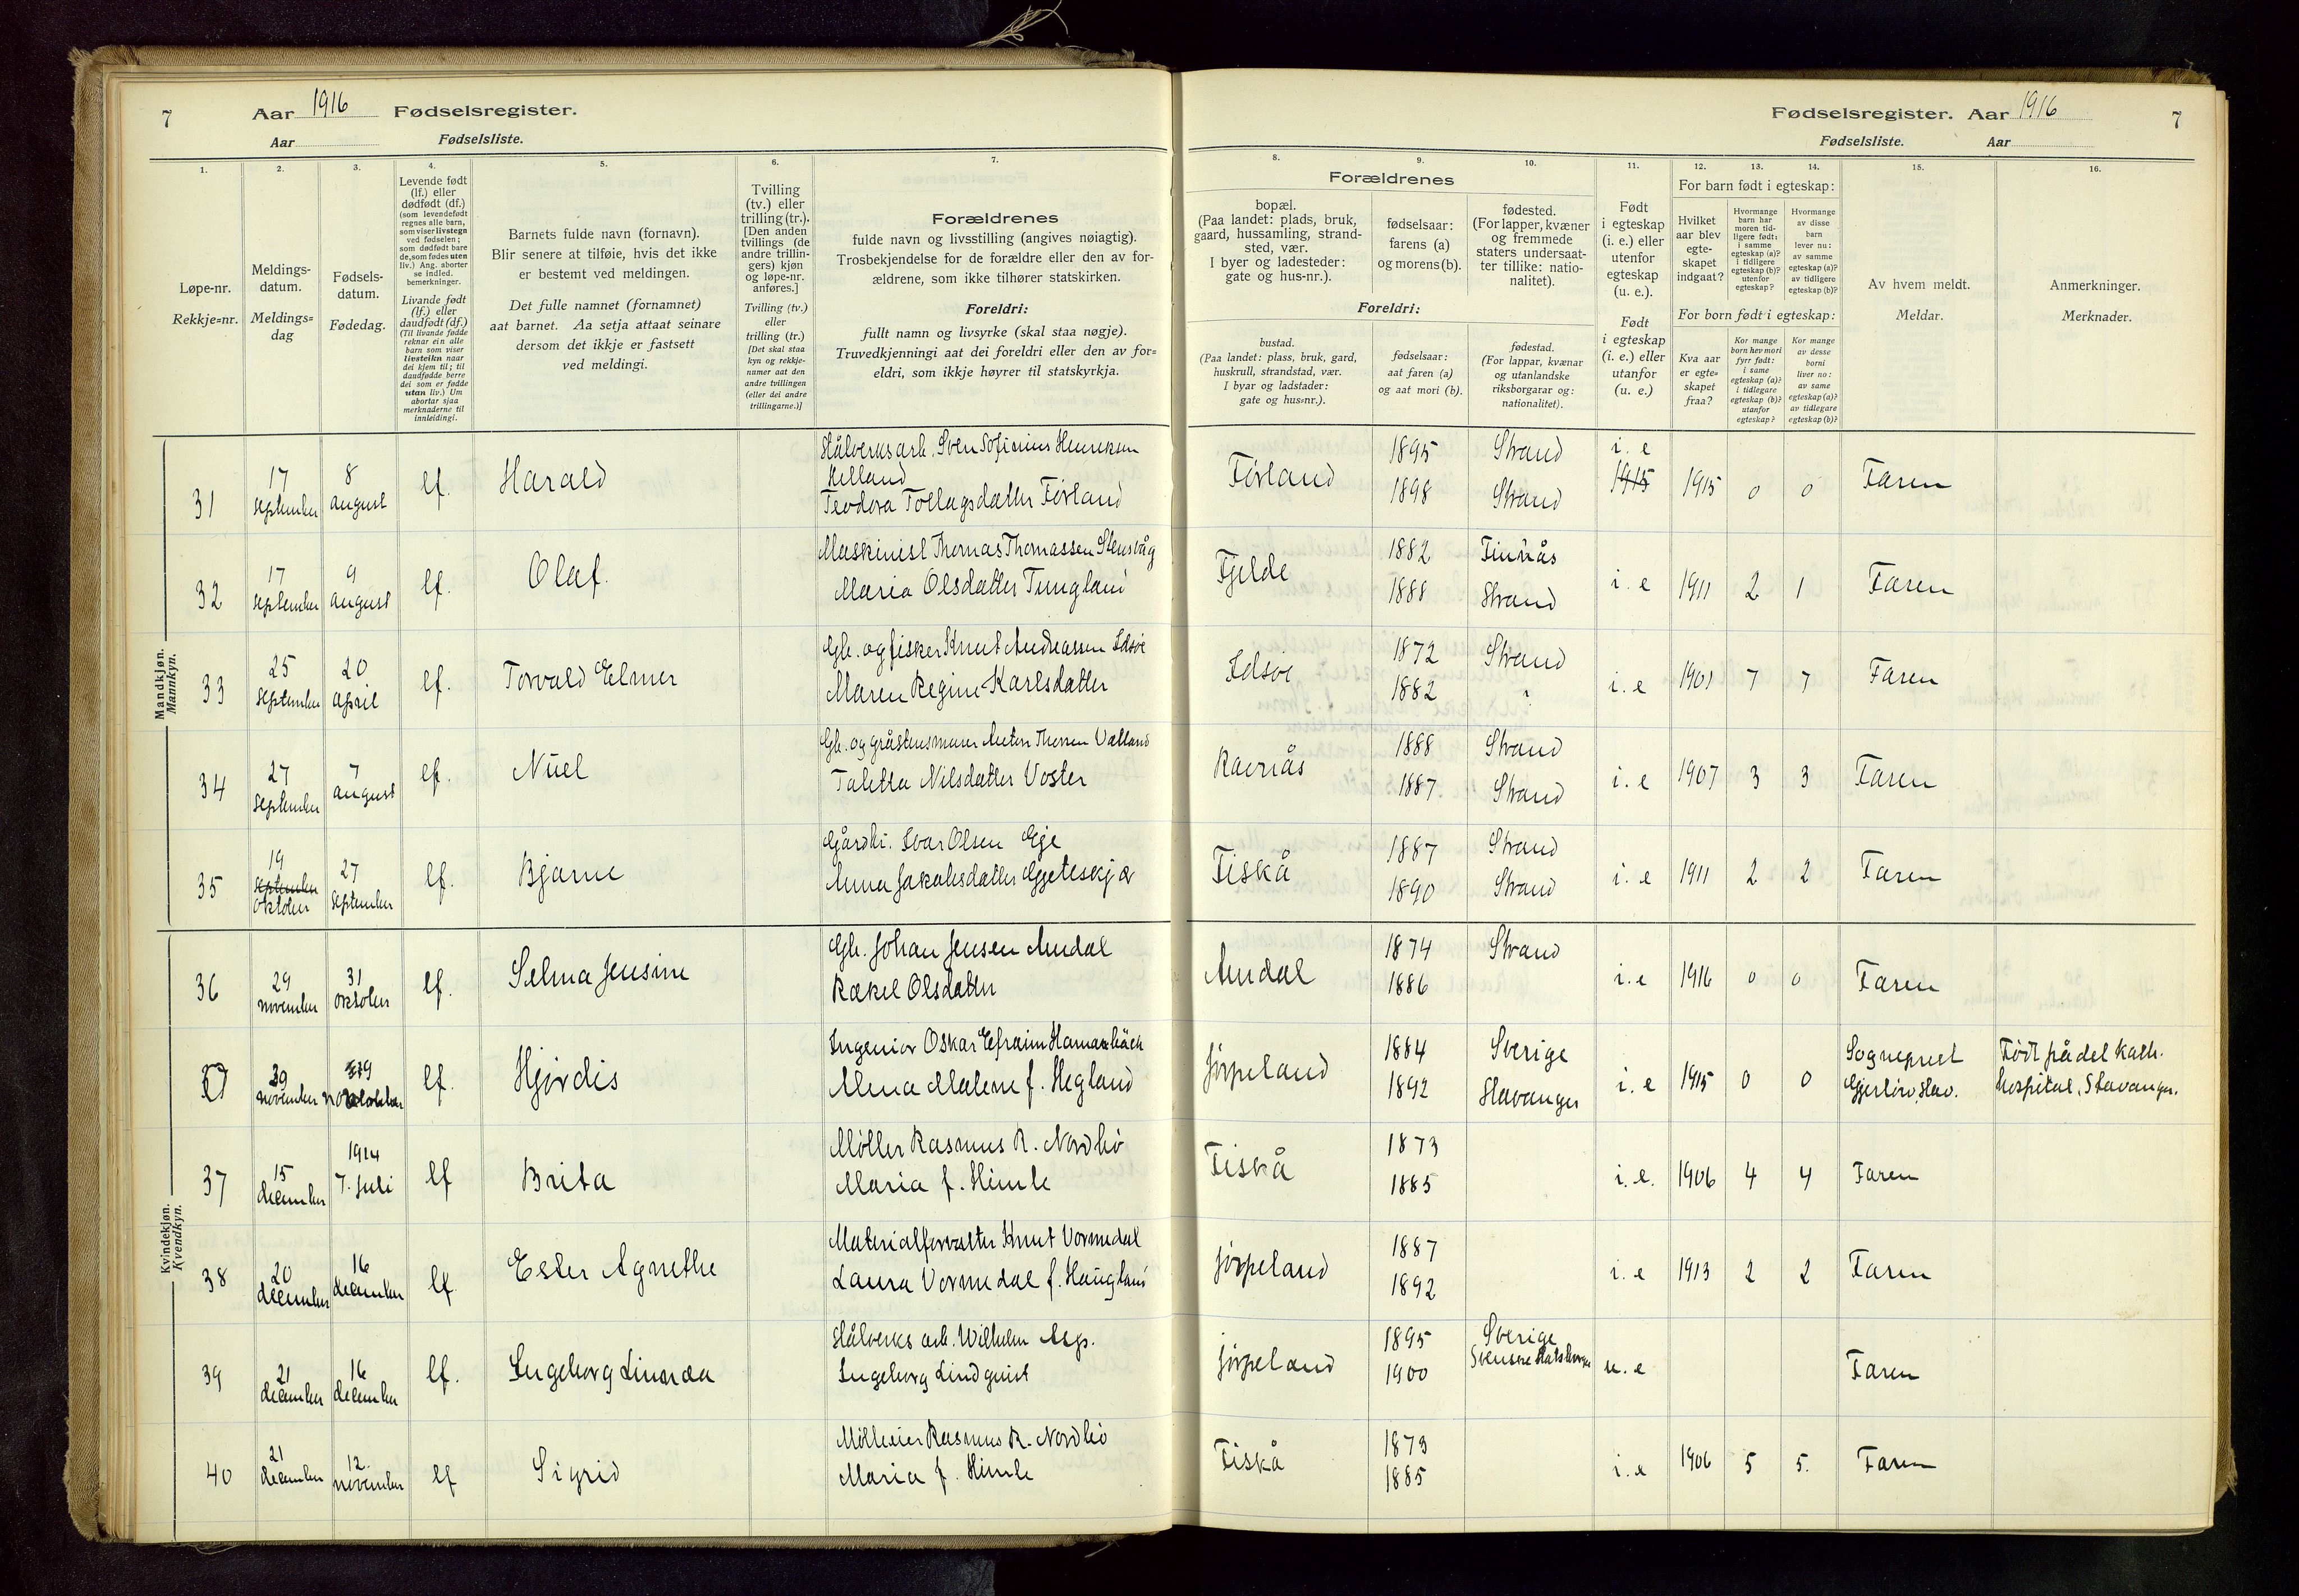 7 Aar 1916 Fødselsregister.
Aar Fødselsliste.
Fødselsregister. Aar 1916 7
Fødselsliste. Aar
1. 2. 3. 4. 5. 6. 7.
Løpe-nr.
Rekkje=nr.
Meldings-
datum.
Meldings=
dag
Fødsels-
datum.
Fødedag.
Levende født
(lf.) eller
dødfødt (df.)
(som levendefødt
regnes alle barn,
som viser livstegn
ved fødselen;
som dødfødt bare
de, som fødes uten
liv.) Ang. aborter
se indled.
bemerkninger.
Livande født
(lf.) eller
daudfødt (df.)
(Til livande fødde
reknar ein alle
barn som viser
livsteikn naar
dei kjem til; til
daudfødde berre
dei som er fødde
utan liv.) Um
abortar sjaa
merknaderne til
innleidingi.
Barnets fulde navn (fornavn).
Blir senere at tilføie, hvis det ikke
er bestemt ved meldingen.
Det fulle namnet (fornamnet)
aat barnet. Aa setja attaat seinare
dersom det ikkje er fastsett
ved meldingi.
Tvilling
(tv.) eller
trilling (tr.).
[Den anden
tvillings (de
andre trillin-
gers) kjøn
og løpe-nr.
anføres.]
Tvilling (tv.)
eller
trilling (tr.)
[Det skal staa
kyn og rekkje-
numer aat den
andre tvillingen
(eller dei andre
trillingarne.)]
Forældrenes
fulde navn og livsstilling (angives nøiagtig).
Trosbekjendelse for de forældre eller den av for-
ældrene, som ikke tilhører statskirken.
Foreldri:
fullt namn og livsyrke (skal staa nøgje).
Truvedkjenningi aat dei foreldri eller den av for=
eldri, som ikkje høyrer til statskyrkja.
8. 9. 10. 11. 12. 13. 14. 15. 16.
Forældrenes
bopæl.
(Paa landet: plads, bruk,
gaard, hussamling, strand-
sted, vær.
I byer og ladesteder:
gate og hus-nr.).
fødselsaar:
farens (a)
og morens (b).
fødested.
(For lapper, kvæner
og fremmede
staters undersaat-
ter tillike: natio-
nalitet).
Foreldri:
bustad.
(Paa landet: plass, bruk, gard,
huskrull, strandstad, vær.
I byar og ladstader:
gate og hus=nr.).
fødselsaar:
aat faren (a)
og aat mori (b).
fødestad.
(For lappar, kvænar
og utanlandske
riksborgarar og:
nationalitet).
Født
i egteskap
(i. e.) eller
utenfor
egteskap
(u. e.).
Født
i egteskap
(i. e.) eller
utanfor
(u. e.)
For barn født i egteskap:
Hvilket
aar blev
egte-
skapet
indgaat?
Hvormange
barn har
moren tid-
ligere født:
i samme
egteskap (a)?
i tidligere
egteskap (b)?
utenfor
egteskap?
Hvormange
av disse
barn
lever nu:
av samme
egteskap (a)?
av tidligere
egteskap (b)?
For born født i egteskap:
Kva aar
er egte=
skapet
fraa?
Kor mange
born hev mori
fyrr født:
i same
egteskap (a)?
i tidlegare
egteskap (b)?
utanfor
egteskap?
Kor mange
av desse
borni
liver no:
av same
egteskap (a)?
av tidlegare
egteskap (b)?
Av hvem meldt.
Meldar.
Anmerkninger.
Merknader.
Mandkjøn.
Mannkyn.
31 17 september 8 august lf. Harald
Stålverksarb. Sven Sofinius Henriksen
Helland
Teodora Tollagsdatter Førland
Førland 1895 1898 Strand Strand i. e 1915 1915 0 0 Faren
32 17 september 9 august lf. Olaf.
Maskinist Thomas Thomassen Stensvåg
Maria Olsdatter Tungland
Fjelde 1882 1888 Finnås Strand i. e 1911 2 1 Faren
33 25 september 20 april lf. Torvald Elmer
Gb. og fisker Knut Andreassen Idsøe
Maren Regine Karlsdatter
Idsøe 1872 1882 Strand i. e 1901 7 7 Faren
34 27 september 7 august lf. Nüel
Gb. og gråstensmurer Thorsen Valland
Taletta Nilsdatter Voster
Ravnås 1888 1887 Strand Strand i. e 1907 3 3 Faren
35 19 september oktober 27 september lf. Bjarne
Gårdbr. Ivar Olsen Eje
Anna Jakobsdatter Gjeteskjær
Fiskå 1887 1890 Strand Strand i. e 1911 2 2 Faren
Kvindekjøn.
Kvendkyn.
36 29 november 31 oktober lf. Selma Jensine
Gb. Johan Jensen Amdal
Rakel Olsdatter
Amdal 1874 1886 Strand i. e 1916 0 0 Faren
30 november lf. Hjørdis
Ingeniør Oskar Efraim Hamarbäck
Alma Malene f. Hegland
Jørpeland 1884 1892 Sverige Stavanger i. e 1915 0 0
Sogneprest
Gjerløv, Stav.
Født på det kath.
hospital, Stavanger.
37 15 december 1914 7. juli lf Brita
Møller Rasmus R. Nordbø
Maria f. Himle
Fiskå 1873 1885 i. e. 1906 4 4 Faren
38 20 december 16 december lf. Ester Agnethe
Materialforvalter Knut Vormedal
Laura Vormedal f. Haugland
Jørpeland 1887 1892 i. e 1913 2 2 Faren
39 21 december 16 december lf. Ingeborg Linnea
Stålverks arb. Wilhelm Asp.
Ingeborg Lindquist
Jørpeland 1895 1900 Sverige Svenske statsborger u. e Faren
40 21 december 12. november lf Sigrid
Mølleeier Rasmus R. Nordbø
Maria f. Himle
Fiskå 1873 1885 i. e 1906 5 5. Faren